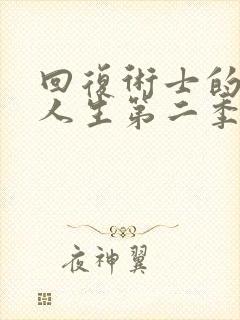 回復術士的
人生第二季
夜神翼